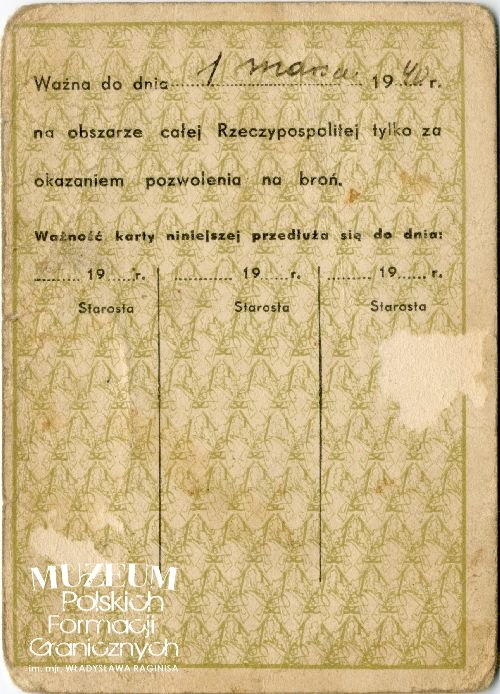 Ważna do dnia 1 marca 1940 r.
na obszarze całej Rzeczypospolitej tylko za
okazaniem pozwolenia na broń.
Ważność karty niniejszej przedłuża się do dnia:
........ 19...... r. ........ 19...... r. ........ 19...... r.
Starosta Starosta Starosta
MUZEUM
Polskich
Formacji
Granicznych
im. mjr. WŁADYSŁAWA RAGINISA